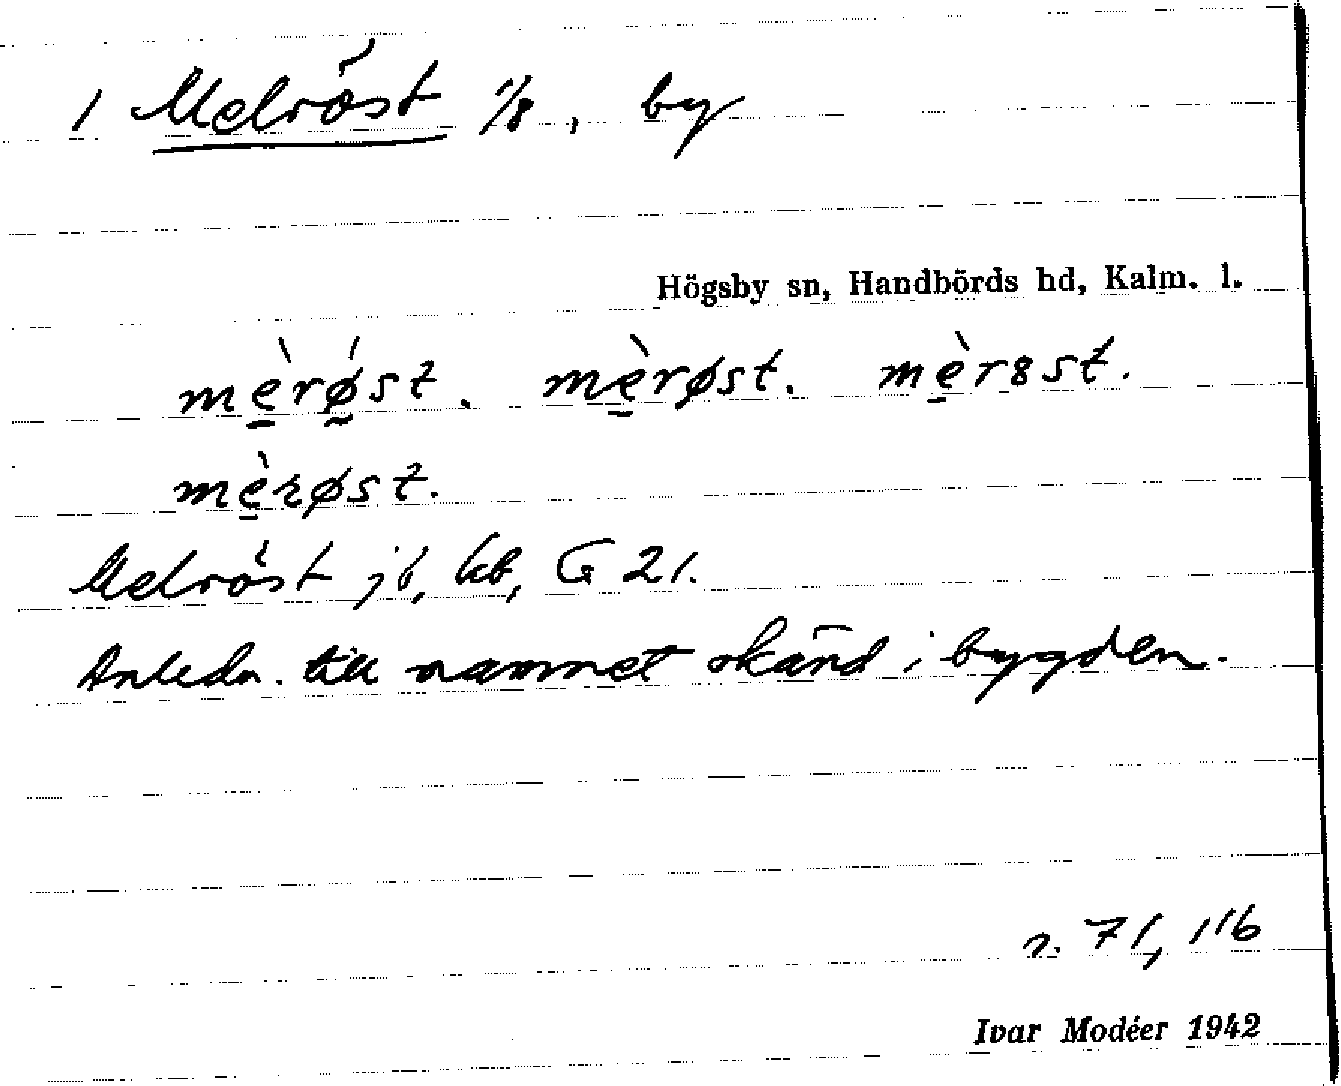 1 Melröst 1/8, by
Högsby sn, Handbörds hd, Kalm. l.
mè̱rǿ̰st. mè̱røst. mè̱r8st.
mè̱røst.
Melröst jb, kb, G 21.
Anledn. till namnet okänd i bygden.
r. 71, 116
Ivar Modéer 1942